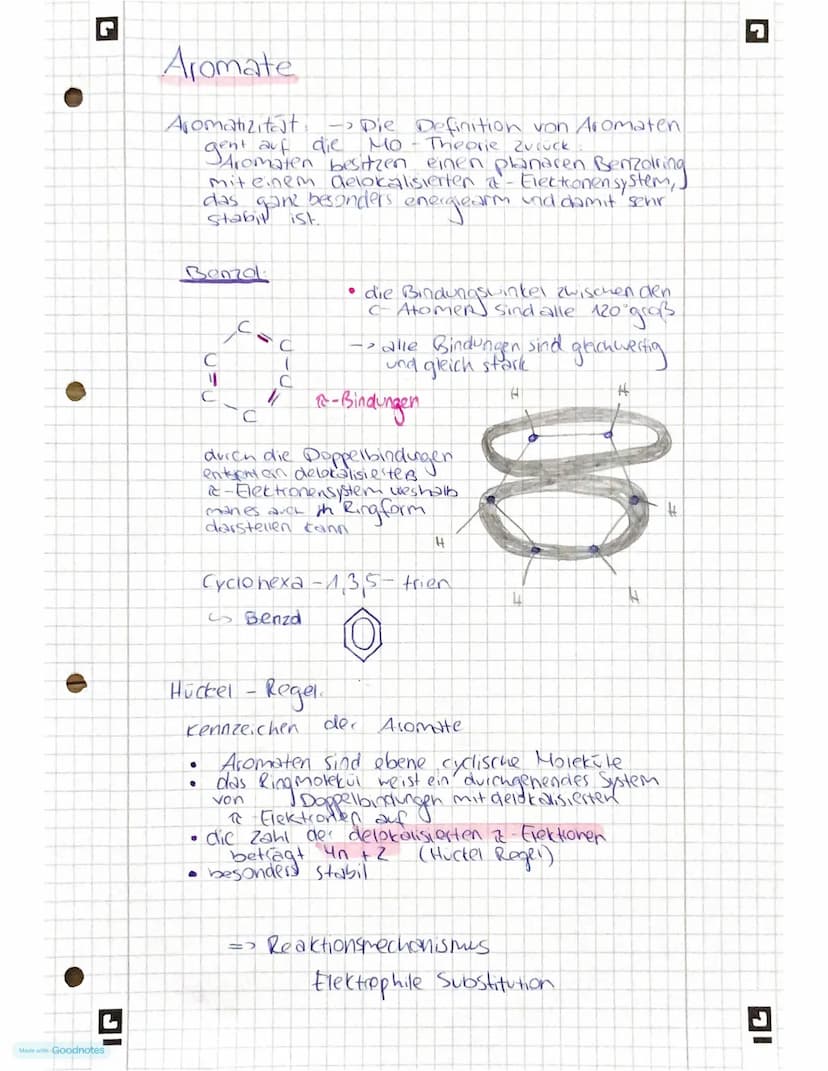 Aromate
Aromatizität: -> Die Definition von Aromaten
geht auf die MO - Theorie zurück.
Aromaten besitzen einen planaren Benzolring
mit einem delokalisierten π - Elektronensystem,
das ganz besonders energiearm und damit sehr
stabil ist.
Benzol:
• die Bindungswinkel zwischen den
C - Atomen sind alle 120° groß
-> alle Bindungen sind gleichwertig
und gleich stark
C
C
C
C
C
C
π-Bindungen
H
H
durch die Doppelbindungen
delokalisiertes
π - Elektronensystem weshalb
man es auch in Ringform
darstellen kann
H
H
H
H
Cyclohexa - 1,3,5 - trien
↳ Benzol
Hückel - Regel:
Kennzeichen der Aromate
• Aromaten sind ebene, cyclische Moleküle
• das Ringmolekül weist ein durchgehendes System
von Doppelbindungen mit delokalisierten
π - Elektronen auf
• die Zahl der delokalisierten π - Elektionen
beträgt 4n + 2 (Hückel Regel)
• besonders stabil
=> Reaktionsmechanismus
Elektrophile Substitution
Made with Goodnotes